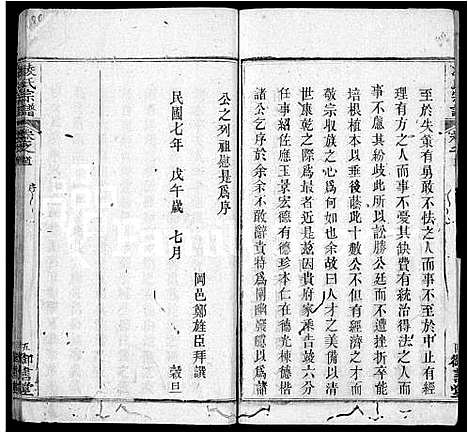 至於失策有勇敢不怯之人而事不至於中止有經
濟之人而事不憂其缺費有統治得法之人而
不慮其紛歧此所以訟勝公庭不遭挫折而克
培根植本以垂後蔭此十數公不有經濟之才而
敬宗收族之心為何如也余故曰人才之美備以清
世康乾之際爲最者近是茲因貴府家乘告竣六分
任事紹佐應玉景宏德有德珍本仁在德光棟德
諸公乞序於余余不敢辭貴特爲闡幽
公之列祖慰是爲序
民國七年 戊午歲 七月 穀旦
岡邑鄭旌臣拜撰
凌氏宗譜
御書堂